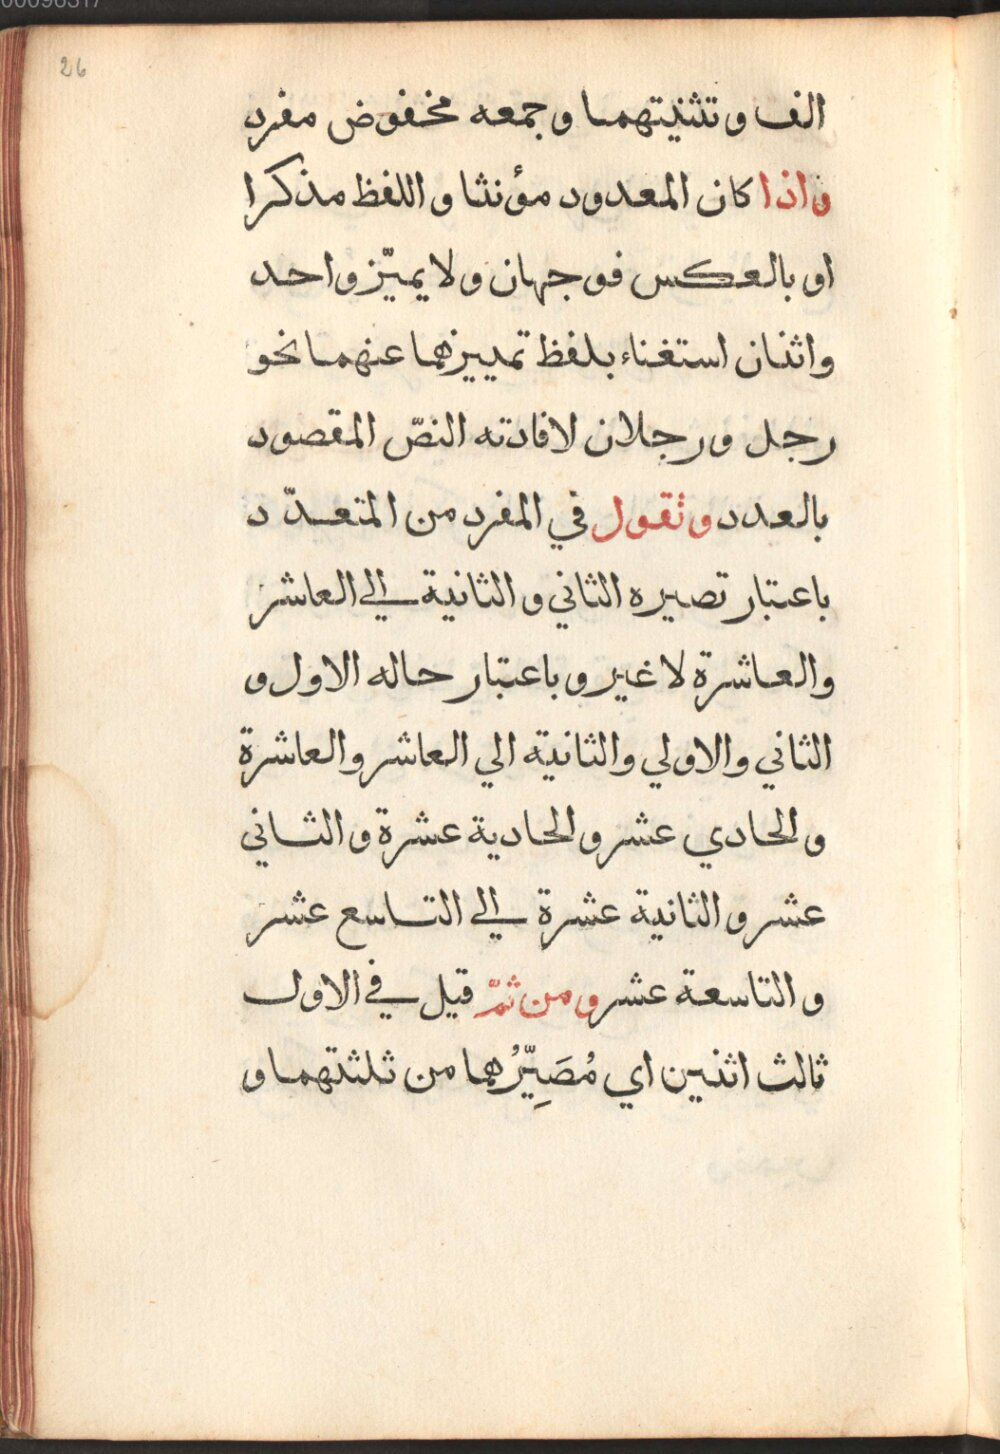 26
الف وتثنيتهما وجمعه مخفوض مفرد
واذا كان المعدود مؤنثا واللفظ مذكرا
او بالعكس فوجهان ولا يميّز واحد
واثنان استغناء بلفظ تمييزهما عنهما نحو
رجل ورجلان لافادته النصّ المقصود
بالعدد وتقول في المفرد من المتعدّد
باعتبار تصيره الثاني والثانية الي العاشر
والعاشرة لا غير وباعتبار حاله الاول و
الثاني والاولي والثانية الي العاشر والعاشرة
والحادي عشر والحادية عشرة والثاني
عشر والثانية عشرة الي التاسع عشر
والتاسعة عشر ومن ثمّ قيل في الاول
ثالث اثنين اي مُصَيِّرُهما من ثلثتهما و